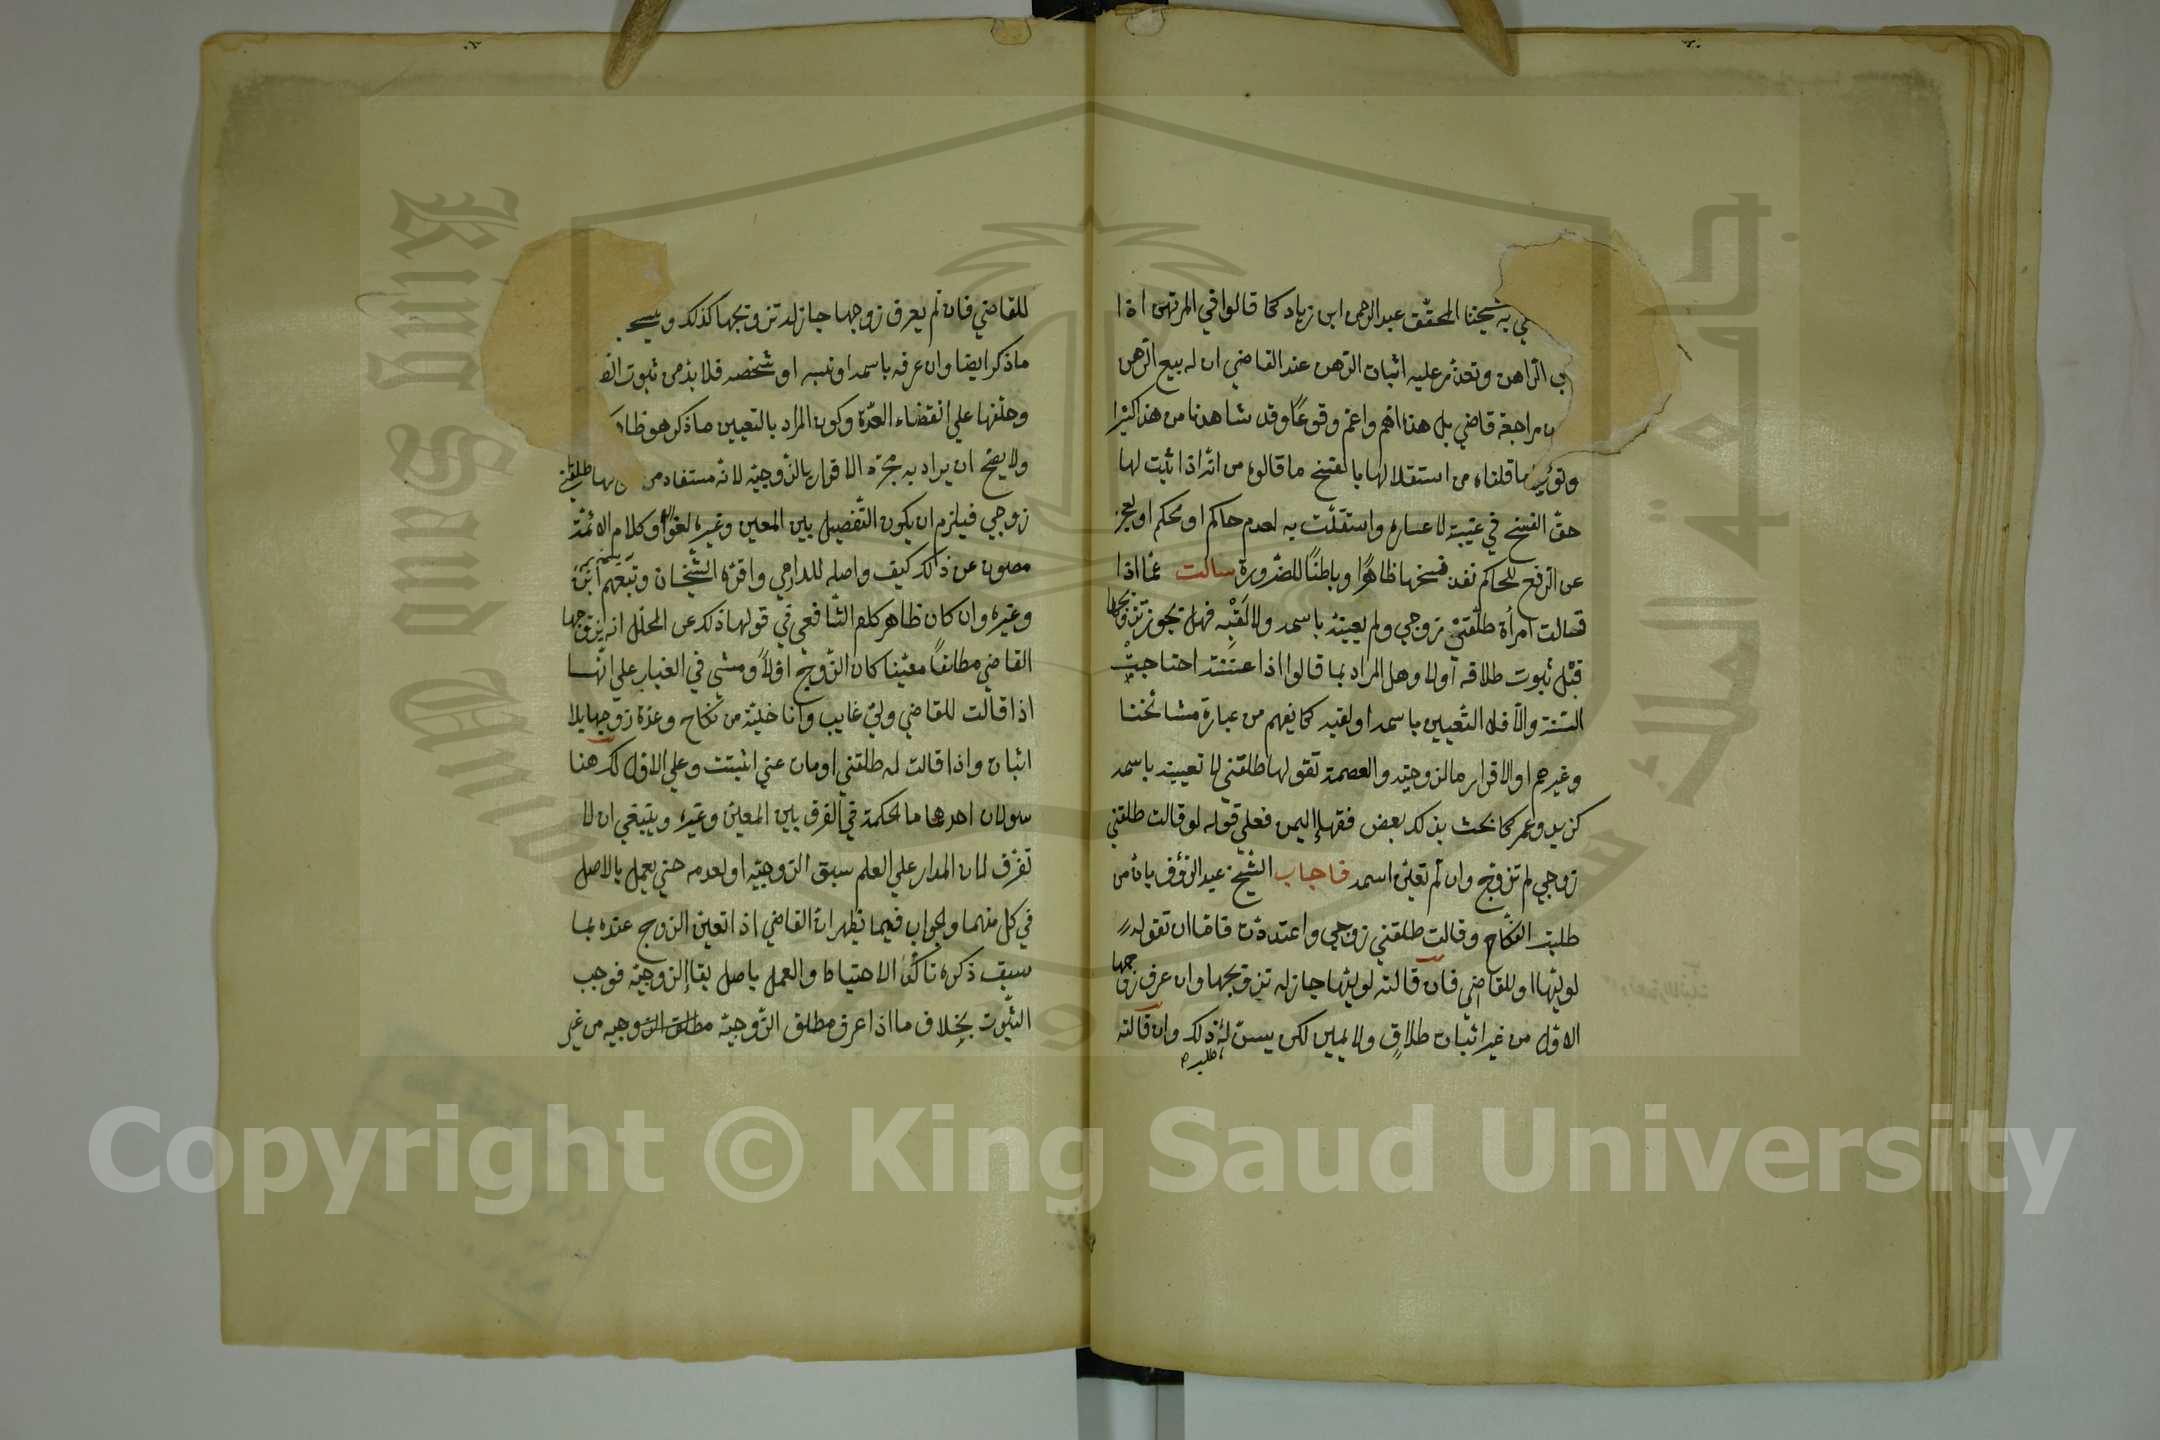 به شيخنا المحقق عبد الرحمن ابن زياد كما قالوا في المرتهن اذا
الراهن وتعذر عليه اثبات الرهن عند القاضي ان له بيع الرهن
مراجعة قاضي بل هذا اهم واعم وقوعًا وقد شاهدنا من هذا كثيرا
ما قلناه من استقلالها بالفسخ ما قالوه من انه اذا ثبت لها
حق الفسخ في غيبة لاعساره واستقلت به لعدم حاكم او محكم او لعجز
عن الرفع للحاكم نفذ فسخها ظاهرًا وباطنًا للضرورة سالت عما اذا
قالت امرأة طلقني زوجي ولم يعينه باسمه ولا لقبه فهل يجوز تزويجها
قبل ثبوت طلاقه اولا وهل المراد بما قالوا اذا عينته احتاجت
البينة والا فلا التعيين باسمه او لقبه كما يفهم من عبارة مشائخنا
وغيرهم او الاقرار مالزوجية والعصمة تقولها طلقني لا تعيينه باسمه
كزيد وعمر كما بحث بذلك بعض فقهاء اليمن فعلى قوله لو قالت طلقني
زوجي لم تزوج وان لم تعين اسمه فاجاب الشيخ عبد الرؤف بان من
طلبت النكاح وقالت طلقني زوجي واعتددت فاما ان تقوله
لوليها او للقاضي فان قالته لوليها جاز له تزويجها وان عرف زوجها
الاول من غير اثبات طلاق ولا يمين لكن يسن له ذلك وان قالته
طلبه
للقاضي فان لم يعرف زوجها جاز له تزويجها كذلك
ما ذكر ايضا وان عرفه باسمه او نسبه او شخصه فلا بد من ثبوت
وحلفها على انقضاء العدة وكون المراد بالتعيين ما ذكر هو
ولا يصح ان يراد به مجرد الاقرار بالزوجية لانه مستفاد من طلقني
زوجي فيلزم ان يكون التفصيل بين المعين وغيره لغوا وكلام الائمة
مصون عن ذلك كيف واصله للدارمي واقره الشيخان وتبعهم
وغيره وان كان ظاهر كلام الشافعي في قولها ذلك عن المحلل انه يزوجها
القاضي مطلقًا معينا كان الزوج اولاً ومشى في العباب على انها
اذا قالت للقاضي ولي غايب وانا خلية من نكاح وعدة زوجها بلا
اثبات واذا قالت له طلقني او مات عني اثبتت وعلى الاول لك هنا
سولان احدهما ما الحكمة في الفرق بين المعين وغيره وينبغي ان لا
تفرق لان المدار على العلم سبق الزوجية اولعدمه حتى يعمل بالاصل
في كل منهما والجواب فيما يظهر ان القاضي اذا تعين الزوج عنده بما
سبق ذكره تاكد الاحتياط والعمل باصل بقاء الزوجية فوجب
الثبوت بخلاف ما اذا عرف مطلق الزوجية مطلق الزوجيه من غير